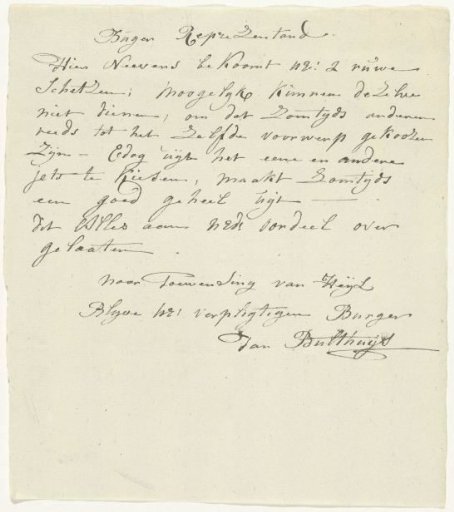 Burger Reprezentand.
Hier Neevens bekoomt UE: 2 ruwe
Schetzen, moogelijk kunnen dezelve
niet dienen, om dat Zomtyds anderen
reeds tot het Zelfde voorwerp gekoozen
Zyn — Edog uyt het eene en andere
jets te kiesen, maakt Zomtyds
een goed geheel uyt —
dit Alles aan UEds oordeel over
gelaaten.
naar Toewensing van Heyl
Blyve UE: verpligtigen Burger
Jan Bulthuys